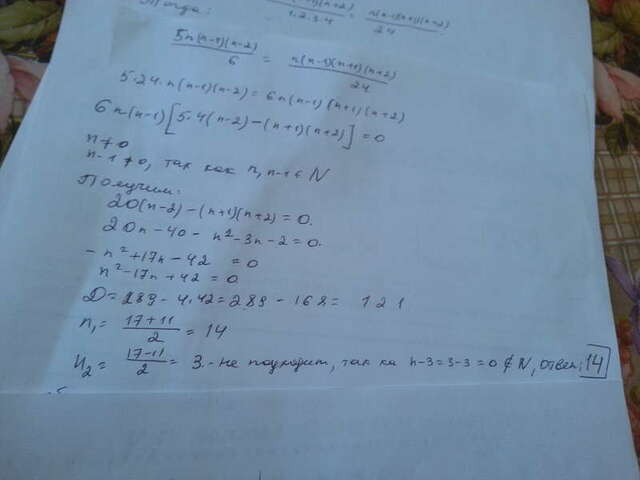 Тогда: (n+2) / 1·2·3·4 = n(n-1)(n+1)(n+2) / 24
5n(n-1)(n-2) / 6 = n(n-1)(n+1)(n+2) / 24
5·24·n(n-1)(n-2) = 6n(n-1)(n+1)(n+2)
6n(n-1)[5·4(n-2)-(n+1)(n+2)] = 0
n≠0
n-1≠0, так как n, n-1 ∈ N
Получим:
20(n-2)-(n+1)(n+2) = 0.
20n-40- n²-3n-2=0.
-n²+17n-42 =0
n²-17n+42=0
D=289-4·42=289-168= 121
n₁= 17+11 / 2 = 14
n₂= 17-11 / 2 = 3.-не подходит, так ка n-3=3-3=0 ∉ N, ответ: 14